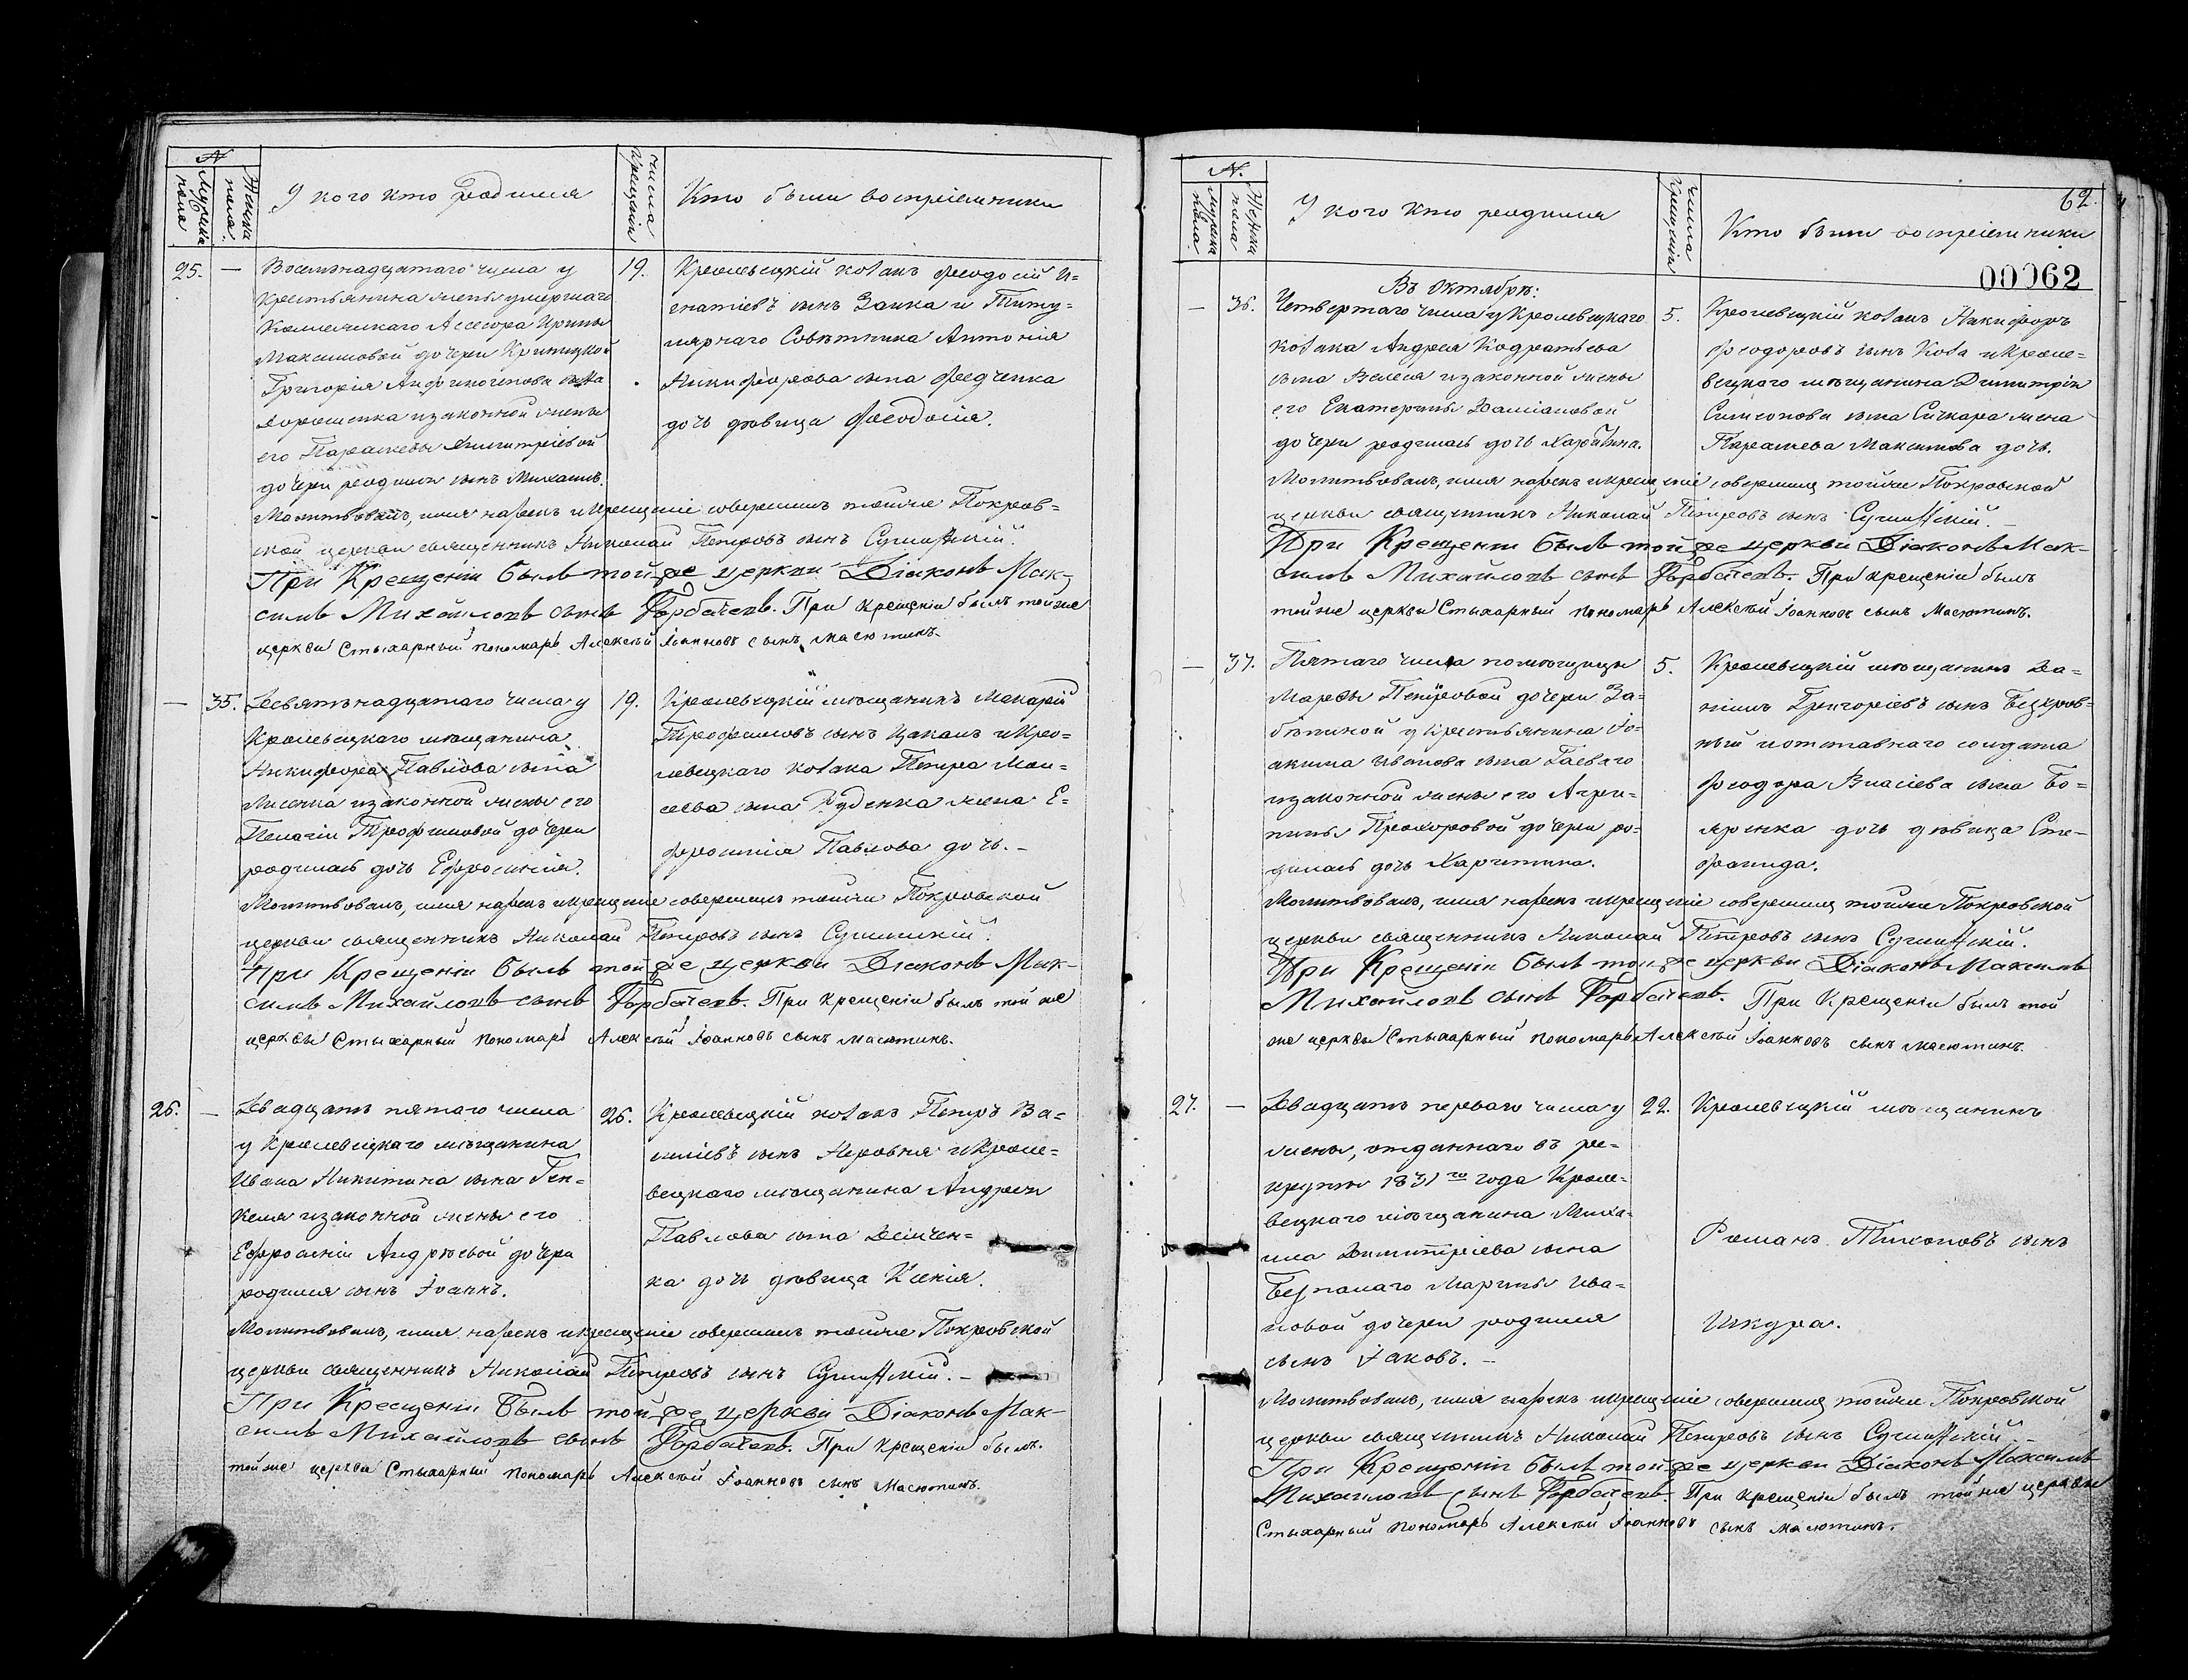 N
Мужска пола
Женска пола.
У кого кто родился
Числа Крещенія
Кто были воспріемники
25. —
Восемнадцатаго числа у
Крестьянина жены умершаго
Коллежскаго Ассесора Ирины
Максимовой дочери Криницкой
Григорія Анфиногенова сына
Дорошенка и законной жены
его Параскевы Димитріевой
дочери родился сынъ Михаилъ.
19.
Кролевецкій козакъ Феодосій И=
гнатіевъ сынъ Заика и Титу=
лярнаго Совѣтника Антонія
Никифорова сына Федченка
дочь дѣвица Феодосія.
Молитвовалъ, имя нарекъ и крещеніе совершилъ тойже Покров=
ской церкви священникъ Николай Петровъ сынъ
При Крещеніи былъ той же церкви Діаконъ Мак-
симъ Михайловъ сынъ Горбачевъ. При крещеніи былъ тойже
церкви Стихарный пономарь Алексѣй Іоанновъ сынъ Масютинъ.
— 35.
Девятьнадцатаго числа у
Кролевецкаго мѣщанина
Никифора Павлова сына
Лисенка и законной жены его
Пелагіи Трофимовой дочери
родилась дочь Ефросинія.
19.
Кролевецкій мѣщанинъ Макарій
Трофимовъ сынъ Цакалъ и Кро=
левецкаго козака Петра Мои=
сеева сына Руденка жена Е=
фросинія Павлова дочь. –
Молитвовалъ, имя нарекъ и крещеніе совершилъ тойже Покровской
церкви священникъ Николай Петровъ сынъ
При Крещеніи былъ той же церкви Діаконъ Мак-
симъ Михайловъ сынъ Горбачевъ. При Крещеніи былъ той же
церкви Стихарный пономарь Алексѣй Іоанновъ сынъ Масютинъ.
26. —
Двадцать пятаго числа
у Кролевецкаго мѣщанина
Ивана Никитина сына Ген=
келя и законной жены его
Ефросиніи Андреевой дочери
родился сынъ Іоаннъ.
26.
Кролевецкій козакъ Петръ Ва=
силіевъ сынъ Неровня и Кроле=
вецкаго мѣщанина Андрея
Павлова сына Демчен=
ка дочь дѣвица Ксенія.
Молитвовалъ, имя нарекъ и крещеніе совершилъ тойже Покровской
церкви священникъ Николай Петровъ сынъ
При Крещеніи былъ той же церкви Діаконъ Мак-
симъ Михайловъ сынъ Горбачевъ. При Крещеніи былъ
тойже церкви Стихарный пономарь Алексѣй Іоанновъ сынъ Масютинъ.
N.
Мужска пола.
Женска пола
У кого кто родился
Числа Крещенія
Кто были воспріемники
62.
00062
Въ Октябрѣ:
— 36.
Четвертаго числа у Кролевецкаго
козака Андрея Кодратьева
сына Велеся и законной жены
его Екатерины Даміановой
дочери родилась дочь Харитина.
5.
Кролевецкій козакъ Никифоръ
Феодоровъ сынъ Коза и Кроле=
вецкаго мѣщанина Димитрія
Симеонова сына Сичкара жена
Параскева Максимова дочь.
Молитвовалъ, имя нарекъ и крещеніе совершилъ тойже Покровской
церкви священникъ Николай Петровъ сынъ
При Крещеніи былъ той же церкви Діаконъ Мак-
симъ Михайловъ сынъ Горбачевъ. При крещеніи былъ
тойже церкви Стихарный пономарь Алексѣй Іоанновъ сынъ Масютинъ.
— 37.
Пятаго числа помѣщицы
Марфы Петровой дочери За=
бѣлиной у крестьянина Іо=
акима Иванова сына Гаеваго
и законной жены его Агри=
пины Прохоровой дочери ро=
дилась дочь Харитина.
5.
Кролевецкій мѣщанинъ Да=
ніилъ Григоріевъ сынъ Безкров=
ный и отставнаго солдата
Феодора Власіева сына Бо=
яренка дочь дѣвица Сте=
фанида.
Молитвовалъ, имя нарекъ и крещеніе совершилъ тойже Покровской
церкви священникъ Николай Петровъ сынъ
При Крещеніи былъ той же церкви Діаконъ Максимъ
Михайловъ сынъ Горбачевъ. При Крещеніи былъ той
же церкви Стихарный пономарь Алексѣй Іоанновъ сынъ Масютинъ.
27. —
Двадцать перваго числа у
жены, отданнаго въ ре=
круты 1831го года Кроле=
вецкаго мѣщанина Миха=
ила Димитріева сына
Безпалаго Марины Ива=
новой дочери родился
сынъ Іаковъ. –
22.
Кролевецкій мѣщанинъ
Романъ Тихоновъ сынъ
Шкура.
Молитвовалъ, имя нарекъ и крещеніе совершилъ тойже Покровской
церкви священникъ Николай Петровъ сынъ
При Крещеніи былъ той же церкви Діаконъ Максимъ
Михайловъ сынъ Горбачевъ. При крещеніи былъ тойже церкви
Стихарный пономарь Алексѣй Іоанновъ сынъ Масютинъ.